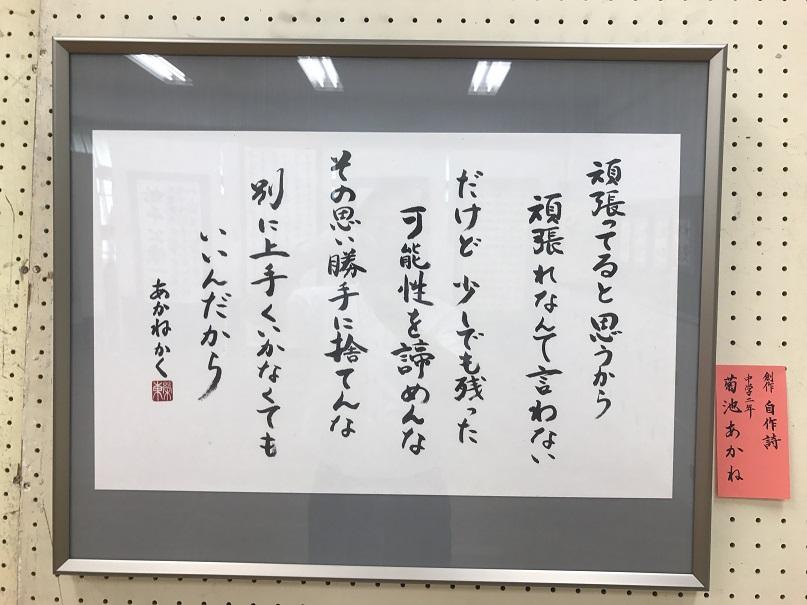 頑張ってると思うから
頑張れなんて言わない
だけど少しでも残った
可能性を諦めんな
その思い勝手に捨てんな
別に上手くいかなくても
いいんだから
あかねかく
創作 自作詩
中学二年
菊池あかね